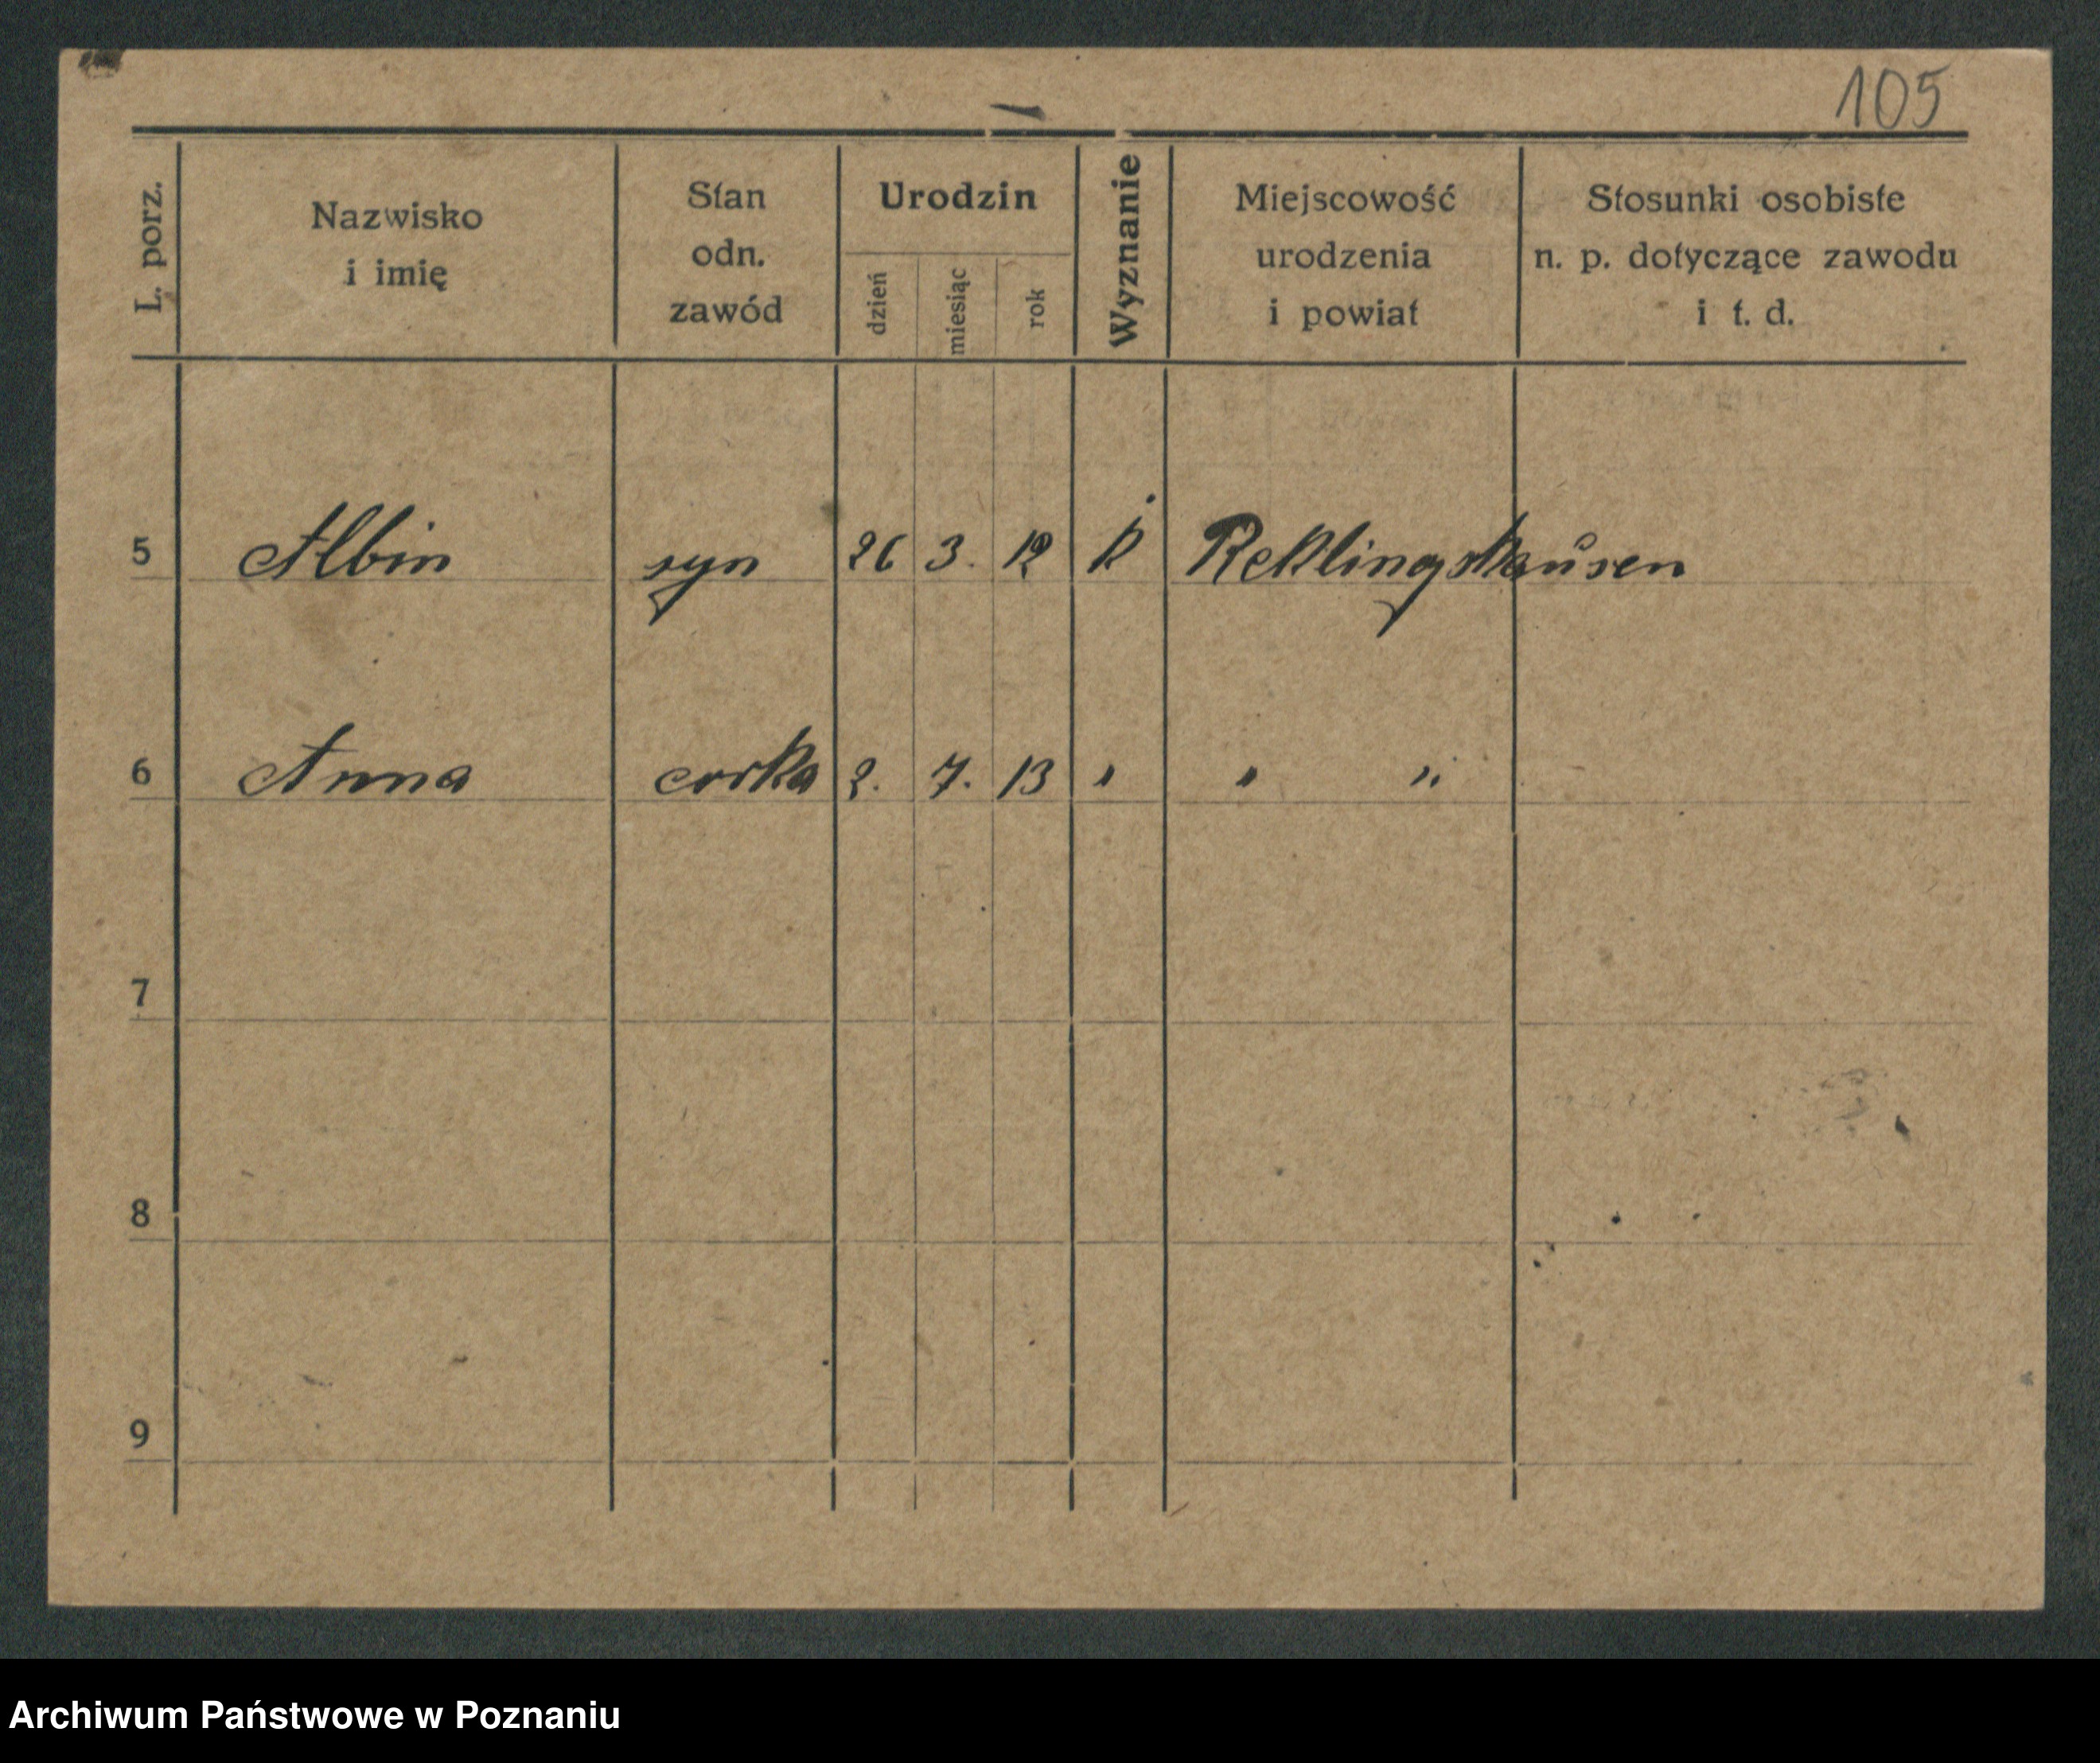 105
L. porz.
Nazwisko
i imię
Stan
odn.
zawód
Urodzin
dzień
miesiąc
rok
Wyznanie
Miejscowość
urodzenia
i powiat
Stosunki osobiste
n. p. dotyczące zawodu
i t. d.
5 Albin syn 26 3. 12 k Reklingshausen
6 Anna corka 2. 7. 13 " " "
7
8
9
Archiwum Państwowe w Poznaniu